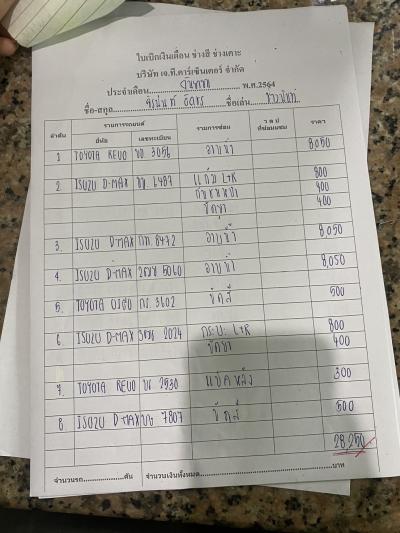 ใบเบิกเงินเดือน ช่างสี ช่างเคาะ
บริษัท เจ.ที.คาร์เซ็นเตอร์ จำกัด
ประจำเดือน พ.ศ.2564
ชื่อ-สกุล ชื่อเล่น
ลำดับ รายการรถยนต์ รายการซ่อม ว ด ป ที่ซ่อมแซม ราคา
ยี่ห้อ เลขทะเบียน
1 TOYOTA REVO 3056 อาบน้ำ 8,050
2 ISUZU D-MAX 6487 แก้ม L+R 800
กันชนหน้า 900
ขัดยา 400
3. ISUZU D-MAX 8472 อาบน้ำ 8,050
4. ISUZU D-MAX 5060 อาบน้ำ 8,050
5. TOYOTA กร. 3602 ขัดสี 500
6 ISUZU D-MAX 2024 กระบะ L+R 800
ขัดยา 400
7. TOYOTA REVO บษ 2930 300
8 ISUZU D-MAX 7807 ขัดสี 500
28,250
จำนวนรถ คัน จำนวนเงินทั้งหมด บาท